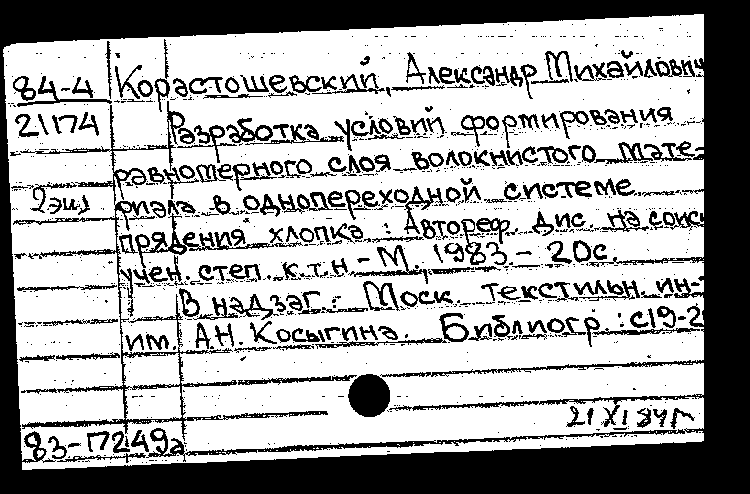 84-4 Корастошевский, Александр Михайлович
21174 Разработка условий формирования
равномерного слоя волокнистого мате-
2экз риала в однопереходной системе
прядения хлопка : Автореф. дис. на соиск
учен. степ. к.т.н - М., 1983. - 20с.
В надзаг.: Моск. текстильн. ин-т
им. А.Н. Косыгина. Библиогр.: с19-20
21 XI 84г
83-17249а